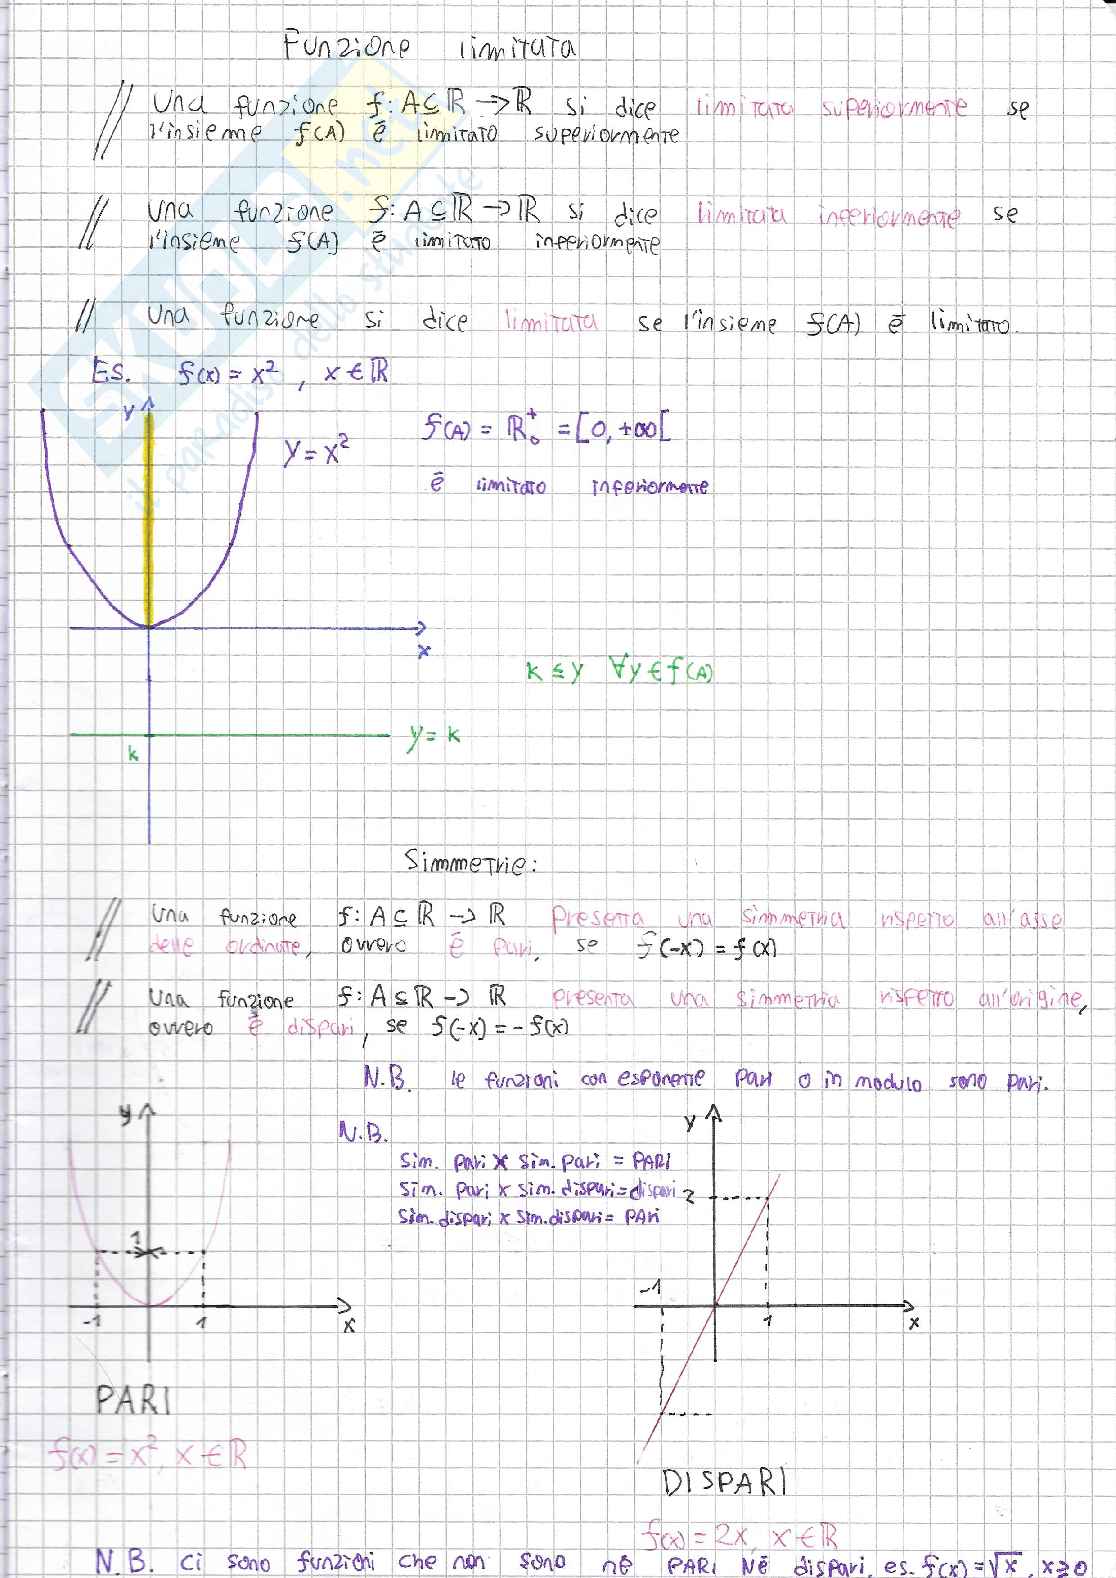 Funzione limitata
Una funzione f: A⊆ℝ → ℝ si dice limitata superiormente se
l'insieme f(A) è limitato superiormente
Una funzione f: A⊆ℝ → ℝ si dice limitata inferiormente se
l'insieme f(A) è limitato inferiormente
Una funzione si dice limitata se l'insieme f(A) è limitato.
Es. f(x) = x² , x ∈ ℝ
y
y = x²
f(A) = ℝ₀⁺ = [0, +∞[
è limitato inferiormente
x
k ≤ y ∀y ∈ f(A)
k
y = k
Simmetrie:
Una funzione f: A ⊆ ℝ → ℝ presenta una simmetria rispetto all'asse
delle ordinate, ovvero è pari, se f(-x) = f(x)
Una funzione f: A ⊆ ℝ → ℝ presenta una simmetria rispetto all'origine,
ovvero è dispari, se f(-x) = -f(x)
N.B. le funzioni con esponente pari o in modulo sono pari.
y
N.B.
Sim. pari x sim. pari = PARI
Sim. pari x sim. dispari = dispari
Sim. dispari x sim. dispari = PARI
1
-1
1
x
PARI
f(x) = x², x ∈ ℝ
y
2
-1
1
x
DISPARI
f(x) = 2x, x ∈ ℝ
N.B. ci sono funzioni che non sono né PARI Né dispari, es. f(x) = √x , x ≥ 0
SKUOLA.net
il paradiso dello studente